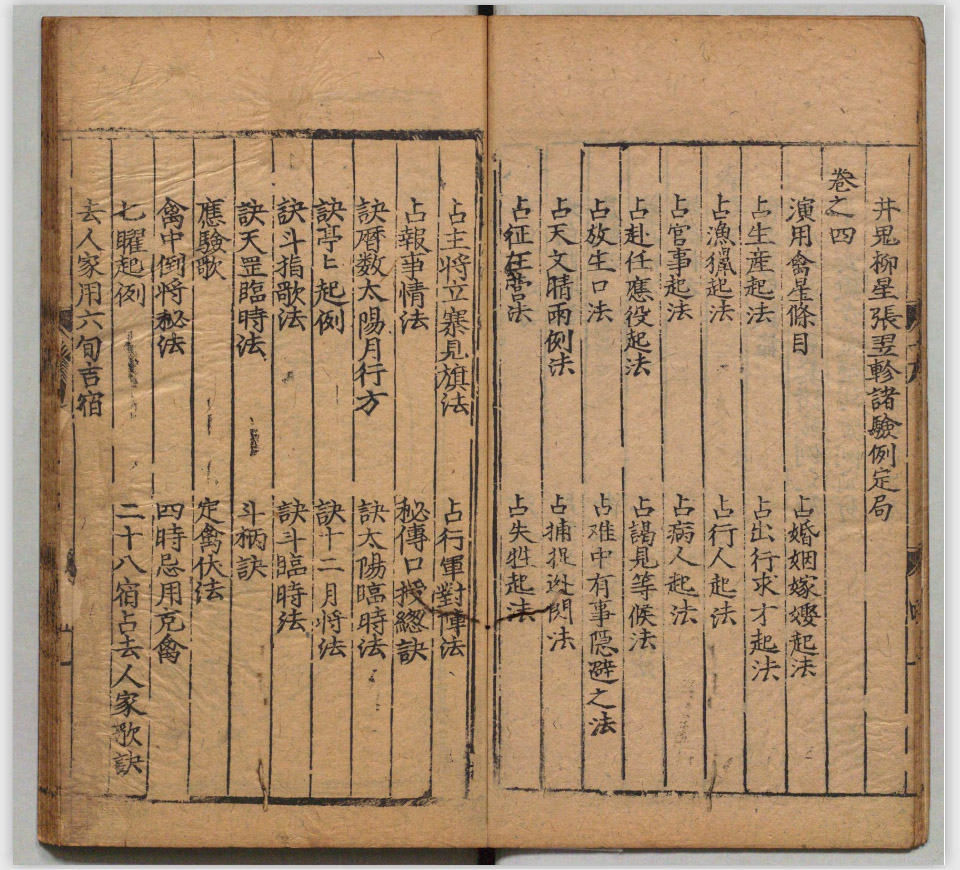 井鬼柳星張翌軫諸驗例定局
卷之四
演用禽星條目 占婚姻嫁娶起法
占生産起法 占出行求才起法
占漁獵起法 占行人起法
占官事起法 占病人起法
占赴任應役起法 占謁見等候法
占放生口法 占难中有事隱避之法
占天文晴雨例法 占捕捉逃閃法
占征 法 占失牲起法
占主將立寨見旗法 占行軍對陣法
占報事情法 秘傳口授緫訣
訣曆数太陽月行方 訣太陽臨時法
訣亭亭起例 訣十二月將法
訣斗指歌法 訣斗臨時法
訣天罡臨時法 斗柄訣
應驗歌 定禽伏法
禽中倒將秘法 四時忌用克禽
七曜起例 二十八宿占去人家歌訣
去人家用六旬吉宿